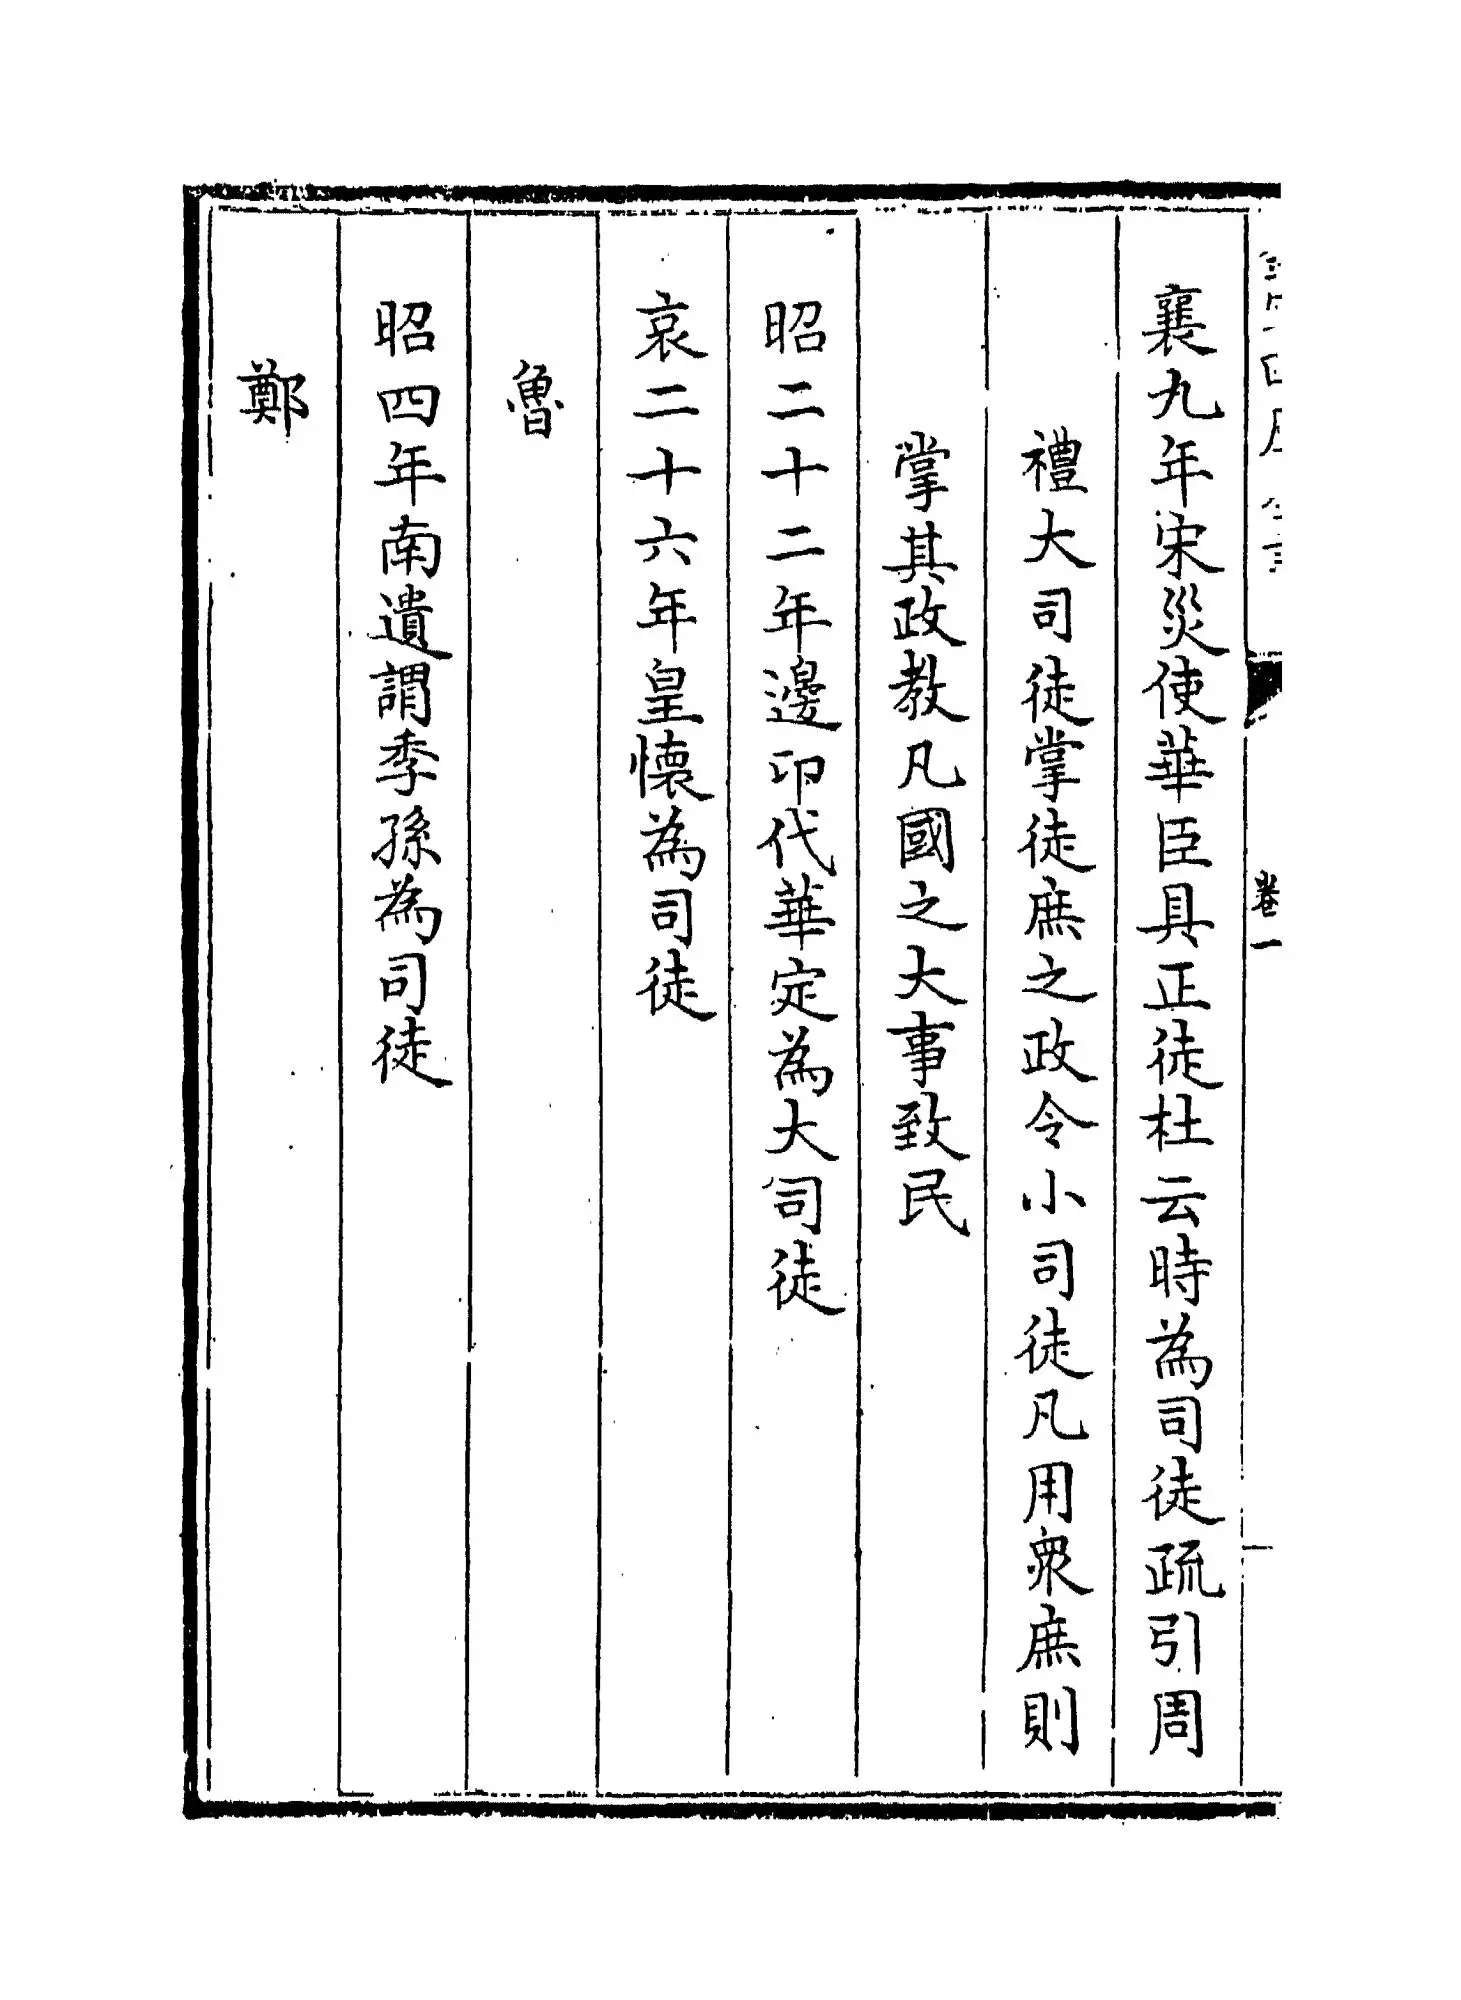 襄九年宋災使華臣具正徒杜云時為司徒疏引周
禮大司徒掌徒庶之政令小司徒凡用衆庶則
掌其政教凡國之大事致民
昭二十二年邊卬代華定為大司徒
哀二十六年皇懷為司徒
魯
昭四年南遺謂季孫為司徒
鄭
卷一